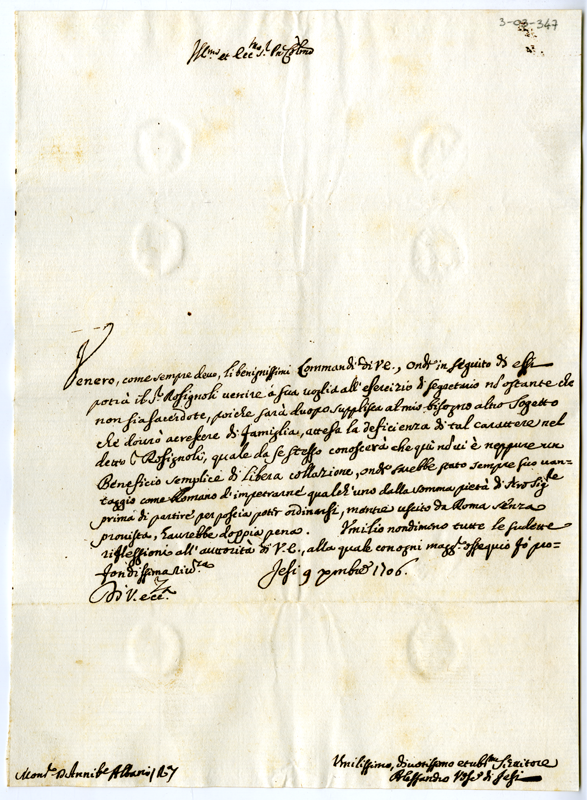 3-03-347
Ill.mo et Ecc.mo S.r Pne Colmo
Venero, come sempre devo, li benignissimi Commandi di V.E., onde in seguito di essi
potrà il S.r Rosignoli venire à sua voglia all'esercizio di segretario nō ostante che
non sia sacerdote, poiche sarà duopo supplisca al mio bisogno altro Sogetto
che dovrò accrescere di famiglia, attesa la deficienza di tal carattere nel
detto S.r Rosignoli, quale da se stesso conoscerà che quì nō vi è neppure un
Beneficio semplice di libera collazione, onde sarebbe stato sempre suo van-
taggio come Romano d'impetrarne qualch'uno dalla somma pietà di Nro Sig.re
prima di partire per poscia poter ordinarsi, mentre uscito da Roma senza
provista, haurebbe doppia pena. Umilio nondimeno tutte le sudette
riflessioni all'autorità di V.E., alla quale con ogni magg.r ossequio fò pro-
fondissima riv.za
Jesi 9 xmbre 1706.
Di V. Ecc.za
Mons.r D. Annibe Albani
Umilissimo, divotissimo et obl.mo Servitore
Alessandro Vesc.o di Jesi